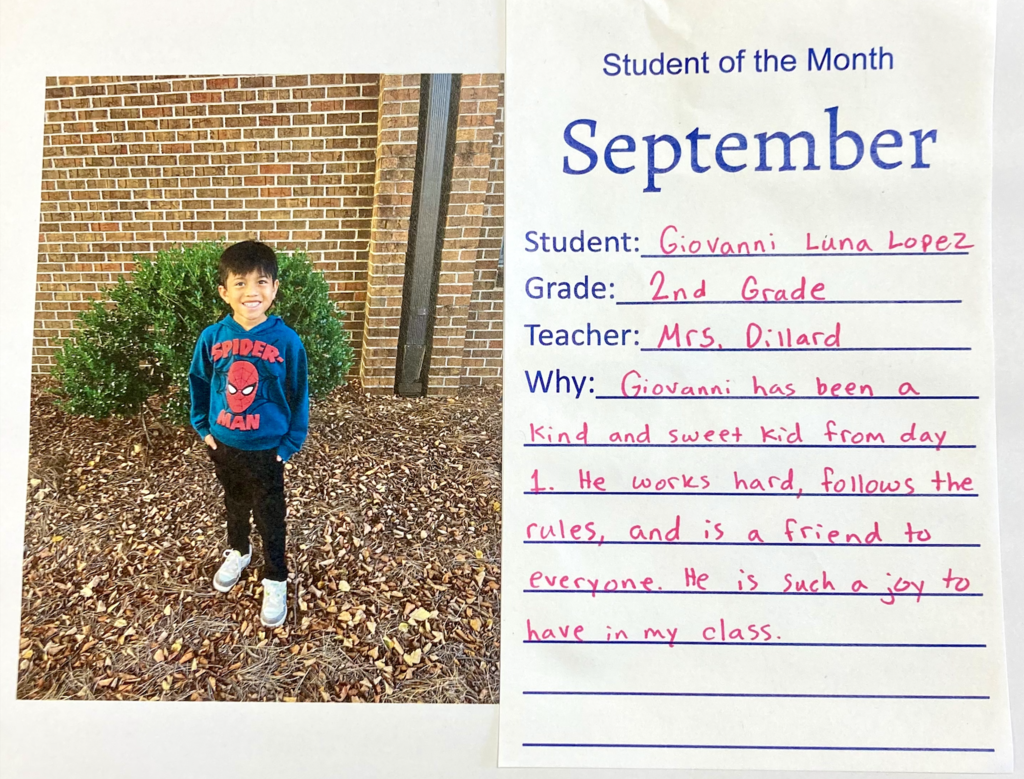 SPIDER-
MAN
Student of the Month
September
Student: Giovanni Luna Lopez
Grade: 2nd Grade
Teacher: Mrs. Dillard
Why: Giovanni has been a
kind and sweet kid from day
1. He works hard, follows the
rules, and is a friend to
everyone. He is such a joy to
have in my class.